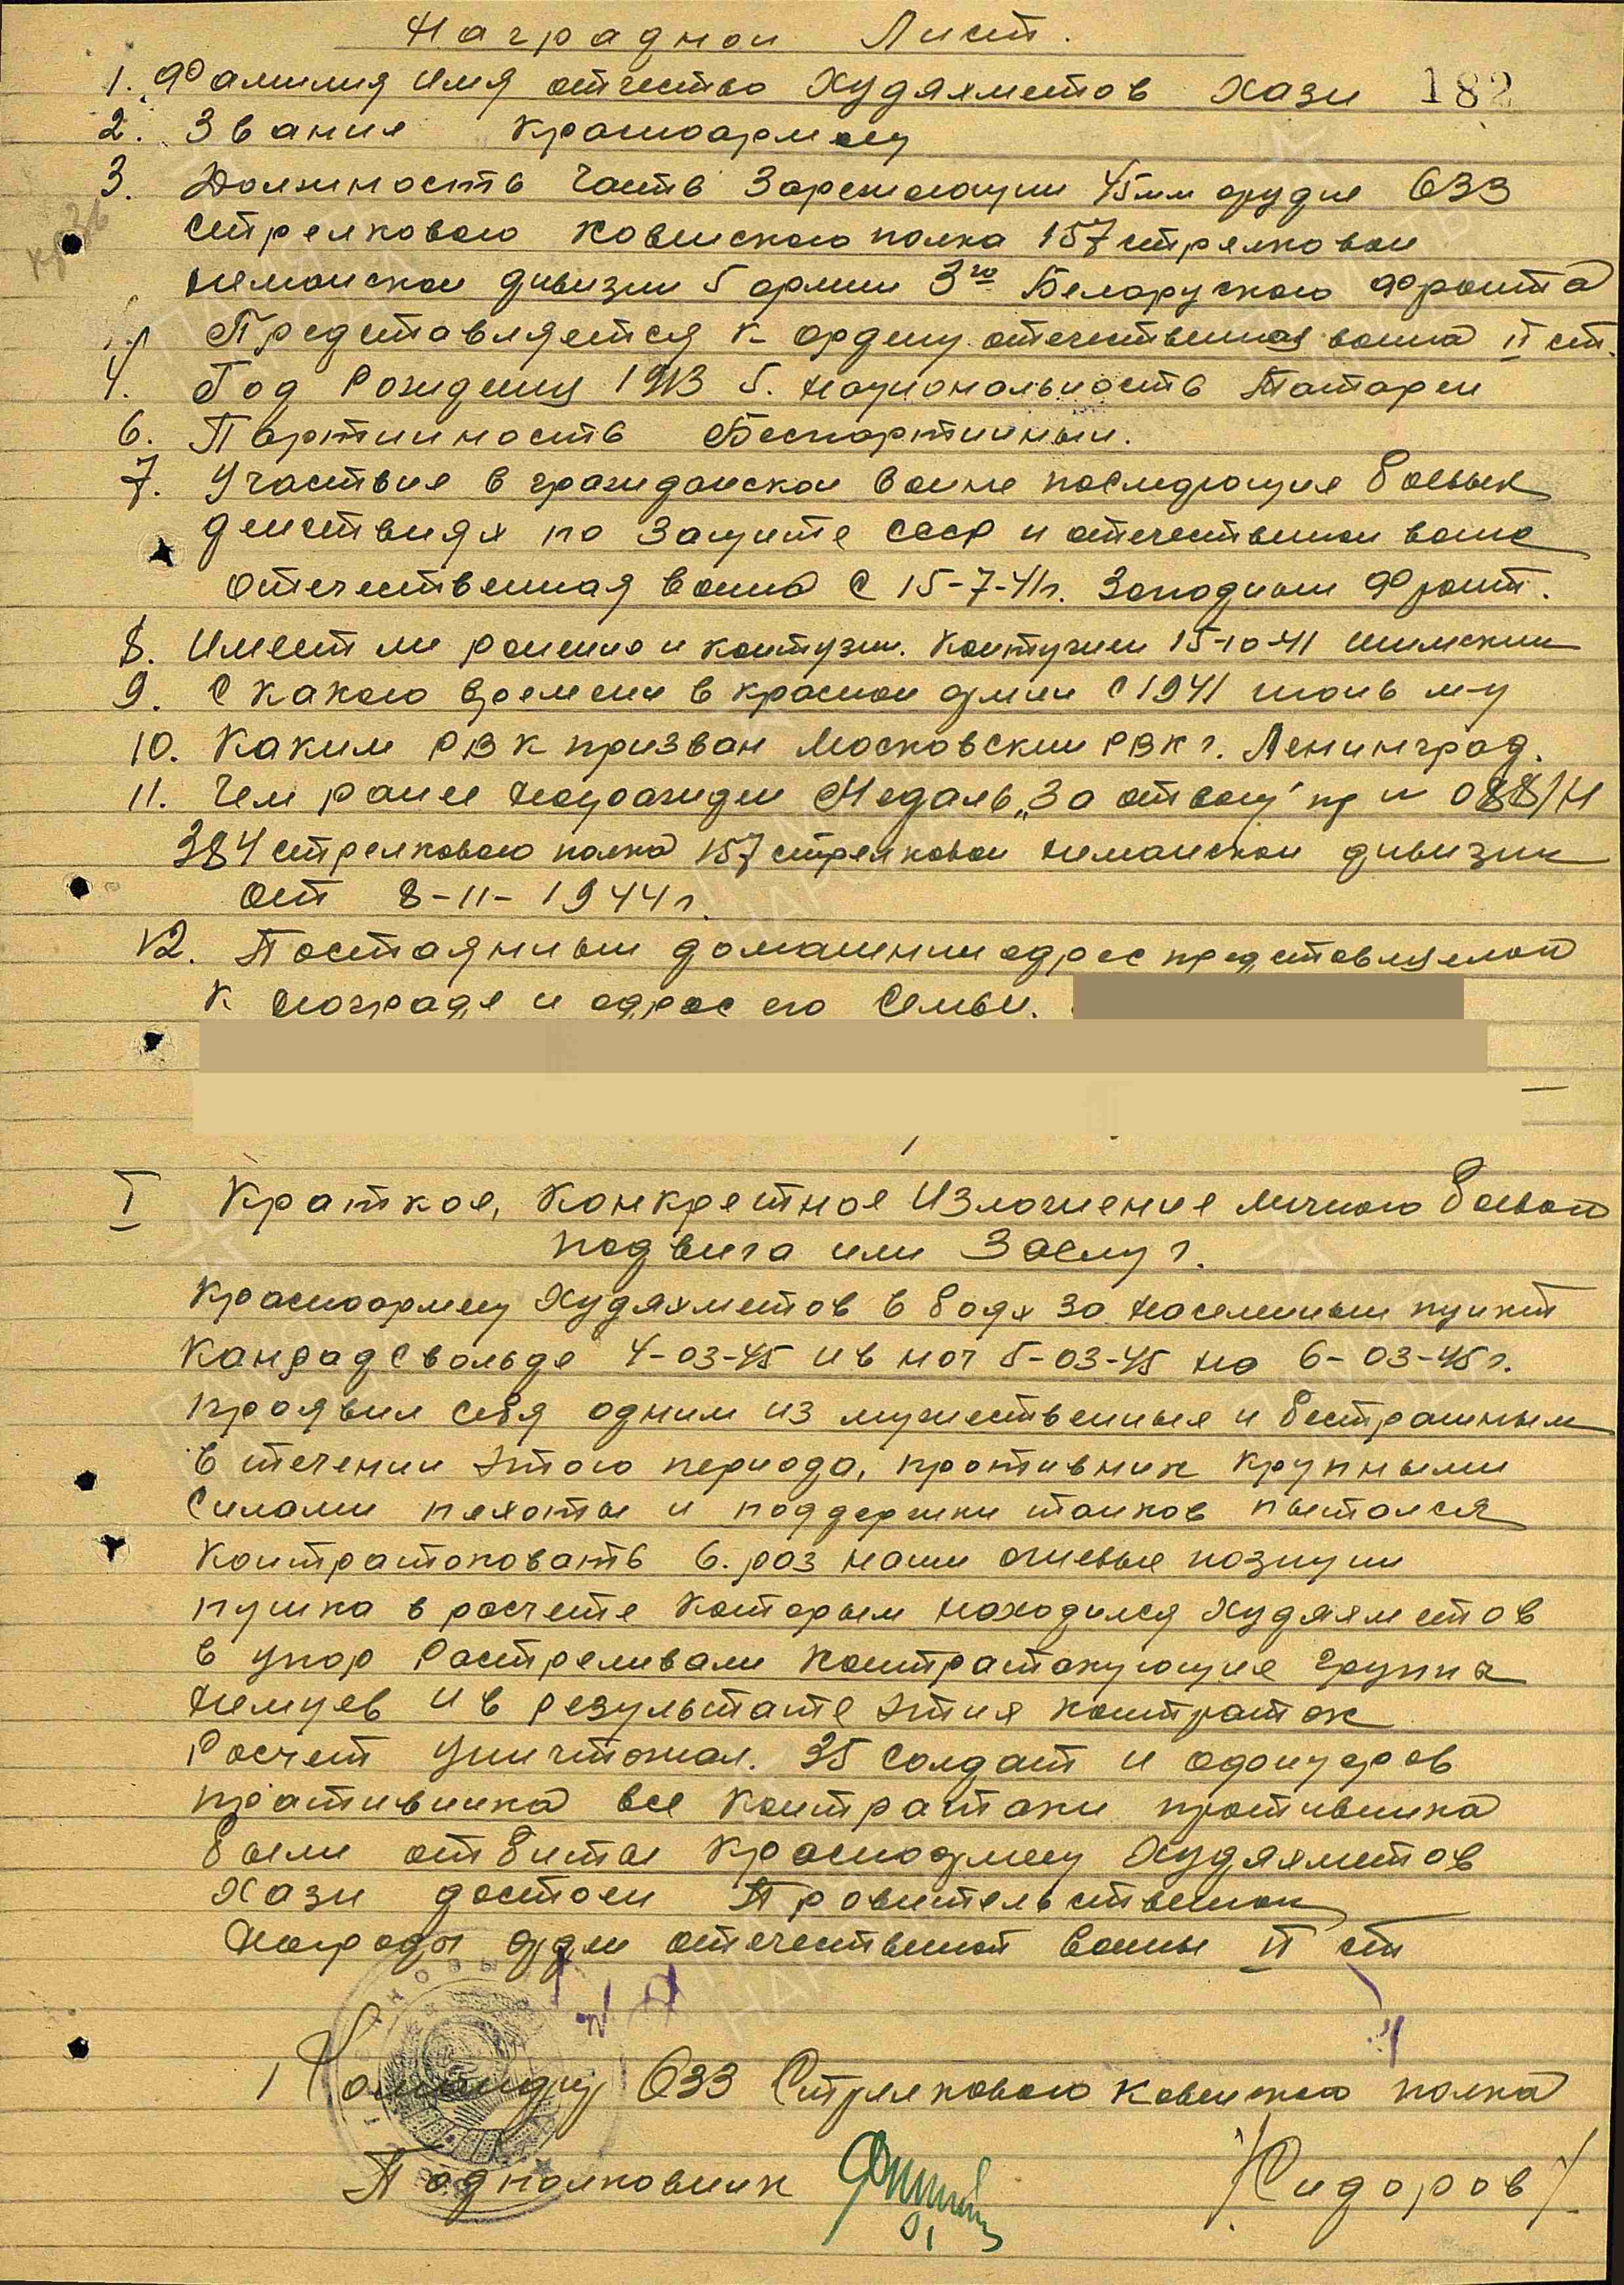 Наградной Лист.
1. Фамилия имя отчество Худяхметов Хази 182
2. Звания Красноармеец
3. Должность часть Заряжающий 45мм орудие 633
стрелкового Ковенского полка 157 стрелковой
неманской дивизии 5 армии 3го Белоруского фронта
Представляется к ордену отечественная война II ст.
4. Год Рождения 1913 5. национальность Татарин
6. Партииность Беспартииный.
7. Участвия в гражданской воине последующие боевых
деиствиях по Защите СССР и отечественной воине
Отечественная воина с 15-7-41г. Западный Фронт.
8. Имеет ли ранения и контузии. Контужен 15-10-41
9. С какого времени в красной армии с 1941 июнь м-ц
10. Каким РВК призван Московскии РВК г. Ленинград.
11. Чем ранее награжден Медаль „За отвагу" пр н 088/Н
384 стрелкового полка 157 стрелковой неманской дивизии
от 8-11-1944г.
12. Постаянный домашнии адрес представляемого
к награде и адрес его Семьи.
I Краткое, Конкретное Изложение личного боевого
подвига или Заслуг.
Красноармеец Худяхметов в боях за населенный пункт
4-03-45 и в ноч 5-03-45 на 6-03-45г.
проявил себя одним из мужественных и бестрашным
в течении этого периода, противник крупными
силами пехоты и поддержки танков пытался
контратоковать 6. раз наши огневые позиции
пушка в расчете которым находился Худяхметов
в упор Растреливали контратакующие группы
немцев и в результате этих контратак
Расчет уничтожил. 35 солдат и офицеров
противника все контратаки противника
были отбиты Красноармеец Худяхметов
Хази достоен Правительственной
Награды орден отечественной воины II ст
Командир 633 Стрелкового Ковенского полка
Подполковник /Сидоров/